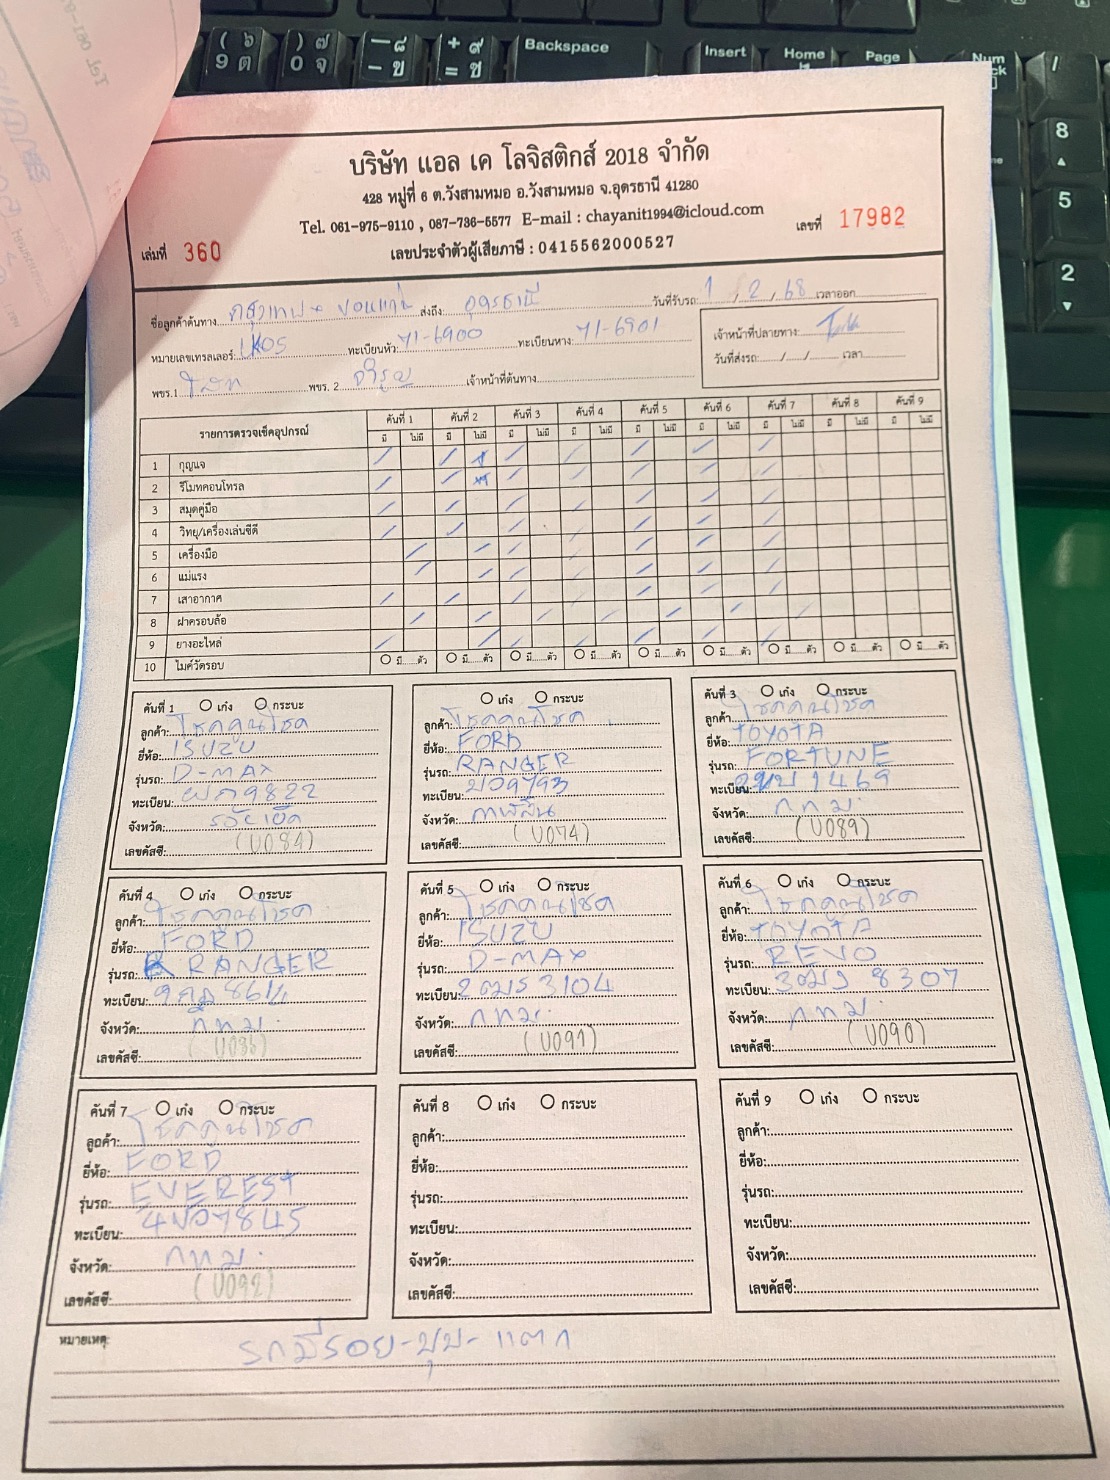 บริษัท แอล เค โลจิสติกส์ 2018 จำกัด
428 หมู่ที่ 6 ต.วังสามหมอ อ.วังสามหมอ จ.อุดรธานี 41280
Tel. 061-975-9110 , 087-736-5577 E-mail : chayanit1994@icloud.com
เลขประจำตัวผู้เสียภาษี : 0415562000527
เล่มที่ 360
เลขที่ 17982
ชื่อลูกค้าต้นทาง กรุงเทพ - ขอนแก่น ส่งถึง: อุดรธานี วันที่รับรถ: 1 / 2 / 68 เวลาออก
หมายเลขเทรลเลอร์: LK05 ทะเบียนหัว: 71-6900 ทะเบียนหาง: 71-6901
พขร.1 พขร. 2 จำรูญ เจ้าหน้าที่ต้นทาง
เจ้าหน้าที่ปลายทาง:
วันที่ส่งรถ: / / เวลา
รายการตรวจเช็คอุปกรณ์ คันที่ 1 คันที่ 2 คันที่ 3 คันที่ 4 คันที่ 5 คันที่ 6 คันที่ 7 คันที่ 8 คันที่ 9
มี ไม่มี มี ไม่มี มี ไม่มี มี ไม่มี มี ไม่มี มี ไม่มี มี ไม่มี มี ไม่มี มี ไม่มี
1 กุญแจ
2 รีโมทคอนโทรล
3 สมุดคู่มือ
4 วิทยุ/เครื่องเล่นซีดี
5 เครื่องมือ
6 แม่แรง
7 เสาอากาศ
8 ฝาครอบล้อ
9 ยางอะไหล่
10 ไมค์วัดรอบ มี ตัว มี ตัว มี ตัว มี ตัว มี ตัว มี ตัว มี ตัว มี ตัว มี ตัว
คันที่ 1 เก๋ง กระบะ
ลูกค้า: โชคคูณโชค
ยี่ห้อ: ISUZU
รุ่นรถ: D-MAX
ทะเบียน: ผก9822
จังหวัด: ร้อยเอ็ด
เลขคัสซี: (U084)
เก๋ง กระบะ
ลูกค้า: โชคคูณโชค
ยี่ห้อ: FORD
รุ่นรถ: RANGER
ทะเบียน: บ09793
จังหวัด: กาฬสิน
เลขคัสซี: (U074)
คันที่ 3 เก๋ง กระบะ
ลูกค้า: โชคคูณโชค
ยี่ห้อ: TOYOTA
รุ่นรถ: FORTUNE
ทะเบียน: 1469
จังหวัด: กทม.
เลขคัสซี: (U089)
คันที่ 4 เก๋ง กระบะ
ลูกค้า: โชคคูณโชค
ยี่ห้อ: FORD
รุ่นรถ: RANGER
ทะเบียน:
จังหวัด: กทม.
เลขคัสซี:
คันที่ 5 เก๋ง กระบะ
ลูกค้า: โชคคูณโชค
ยี่ห้อ: ISUZU
รุ่นรถ: D-MAX
ทะเบียน: 2ฒร 3104
จังหวัด: กทม.
เลขคัสซี: (U091)
คันที่ 6 เก๋ง กระบะ
ลูกค้า: โชคคูณโชค
ยี่ห้อ: TOYOTA
รุ่นรถ: REVO
ทะเบียน: 3ฒง 8307
จังหวัด: กทม.
เลขคัสซี: (U090)
คันที่ 7 เก๋ง กระบะ
ลูกค้า: โชคคูณโชค
ยี่ห้อ: FORD
รุ่นรถ: EVEREST
ทะเบียน: 4ขอ7845
จังหวัด: กทม.
เลขคัสซี: (U092)
คันที่ 8 เก๋ง กระบะ
ลูกค้า:
ยี่ห้อ:
รุ่นรถ:
ทะเบียน:
จังหวัด:
เลขคัสซี:
คันที่ 9 เก๋ง กระบะ
ลูกค้า:
ยี่ห้อ:
รุ่นรถ:
ทะเบียน:
จังหวัด:
เลขคัสซี:
หมายเหตุ: รถมีรอย-บุบ-แตก
Backspace
Insert
Home
Page
Num
8
5
2